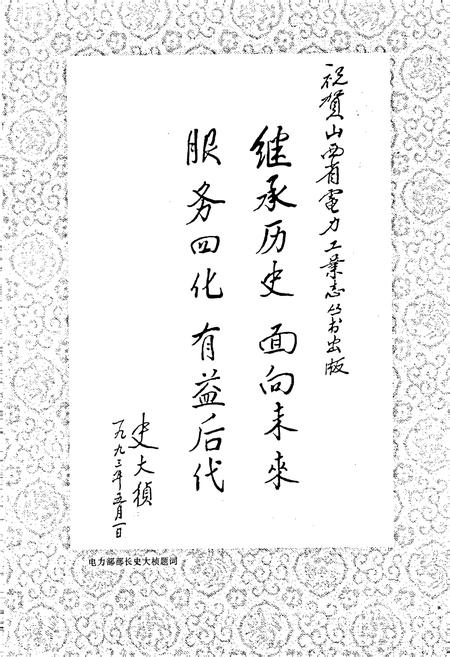 祝贺山西省電力工業志丛书出版
继承历史 面向未來
服务四化 有益后代
史大桢
一九九三年五月一日
电力部部长史大桢题词